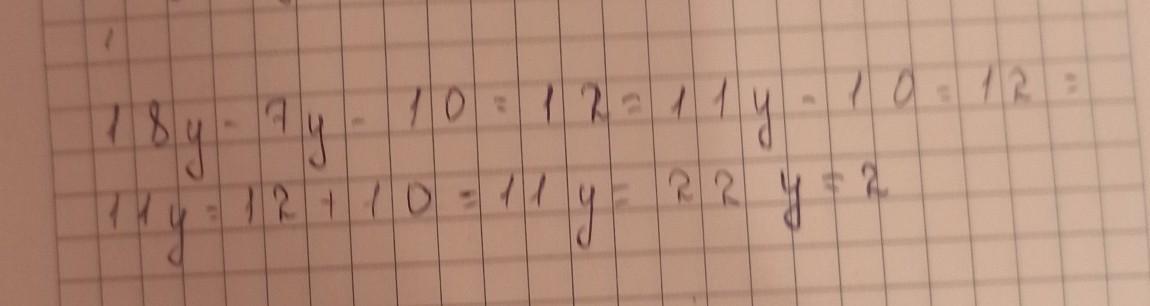 18y - 7y - 10 = 12 = 11y - 10 = 12 =
11y = 12 + 10 = 11y = 22 y = 2